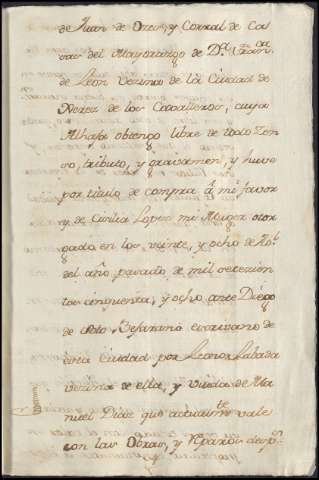 de Juan de Orea, y Corral de Co
vas del Mayorazgo de Dn. Fran.co
de Leon Vezino de la Ciudad de
Xerez de los Cavalleros, cuya
Alhaja obtengo libre de todo Zen
so, tributo, y gravamen, y huve
por titulo de compra á mi favor
y de Cicilia Lopez mi Muger otor
gada en los veinte, y ocho de
del año pasado de mil setezien
tos cinquenta, y ocho ante Diego
de Soto Bejarano escrivano de
esta Ciudad por Leonor Labada
vezina de ella, y viuda de Ma
nuel Diaz que actualmte. vale
con las Obras, y Reparos desp.s